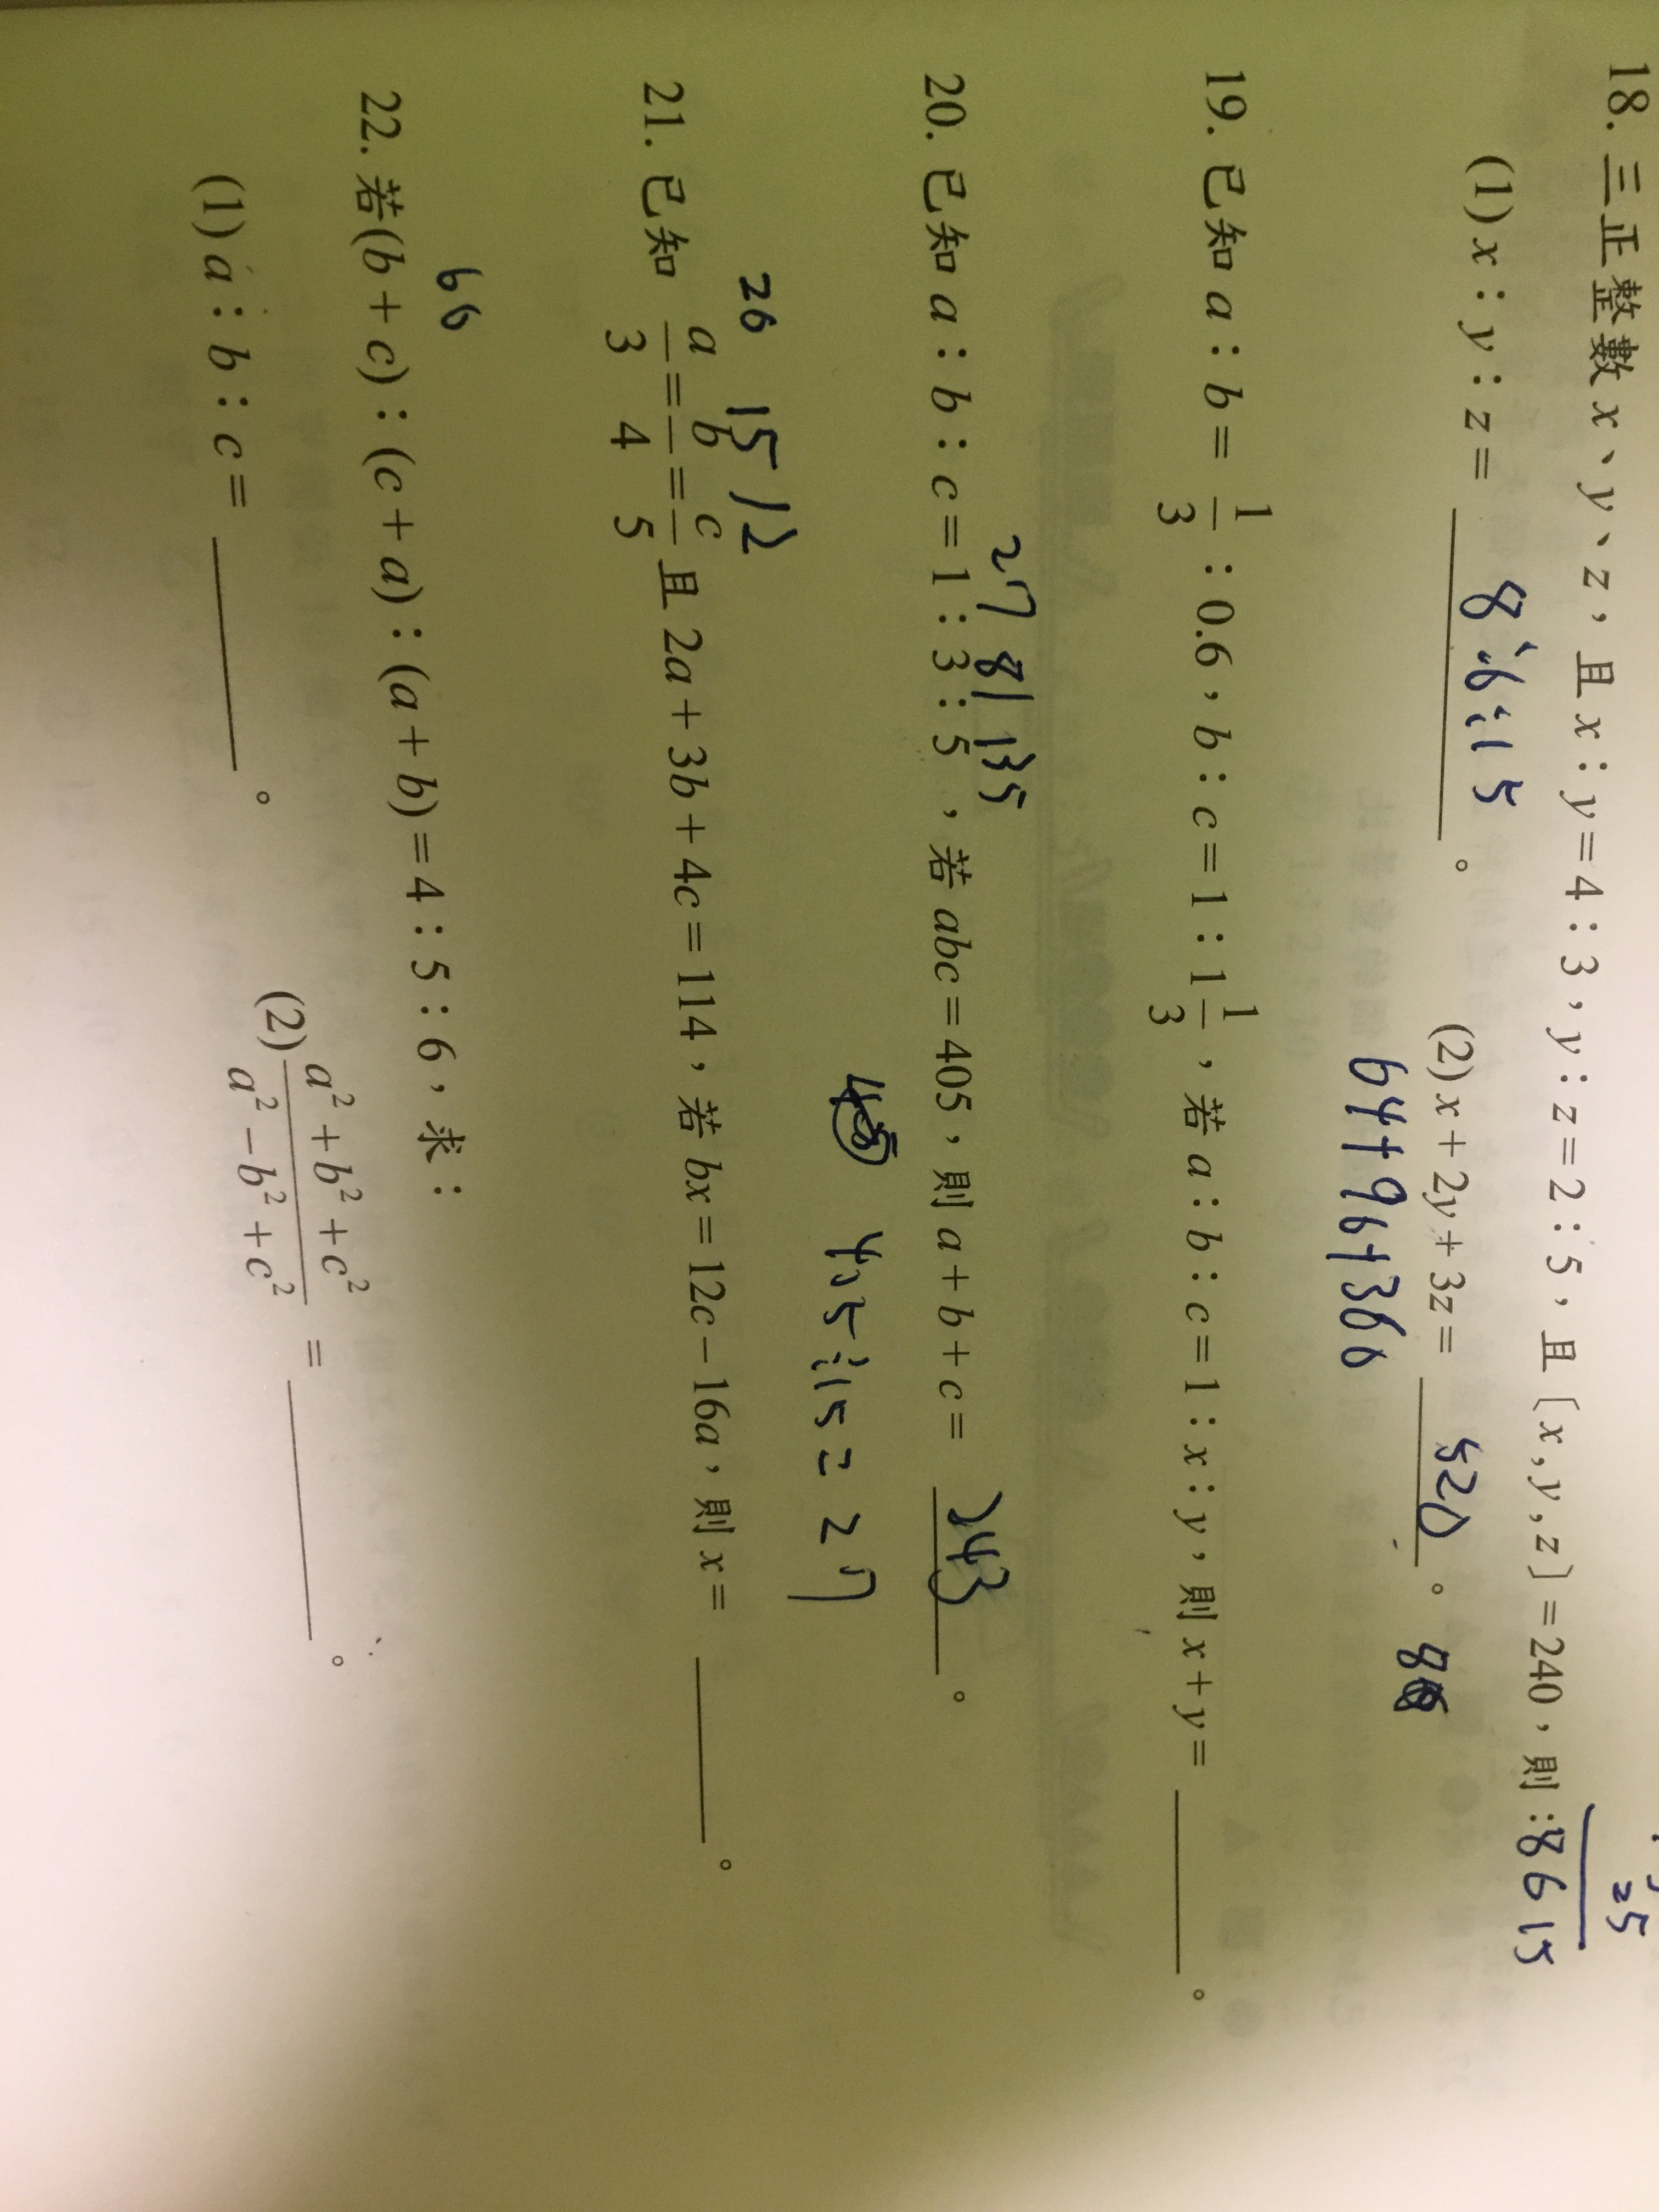 25
18. 三正整數 x、y、z，且 x：y＝4：3，y：z＝2：5，且〔x , y , z〕＝240，則：8 6 15
(1) x：y：z＝ 8:6:15 。 (2) x＋2y＋3z＝ 520 。 8
64+96+360
19. 已知 a：b＝1/3：0.6，b：c＝1：1 1/3，若 a：b：c＝1：x：y，則 x＋y＝ 。
27 81 135
20. 已知 a：b：c＝1：3：5，若 abc＝405，則 a＋b＋c＝ 243 。
405÷15=27
20 15 12
21. 已知 a/3＝b/4＝c/5 且 2a＋3b＋4c＝114，若 bx＝12c－16a，則 x＝ 。
60
22. 若(b＋c)：(c＋a)：(a＋b)＝4：5：6，求：
(1) a：b：c＝ 。 (2) a²＋b²＋c²/a²－b²＋c² ＝ 。